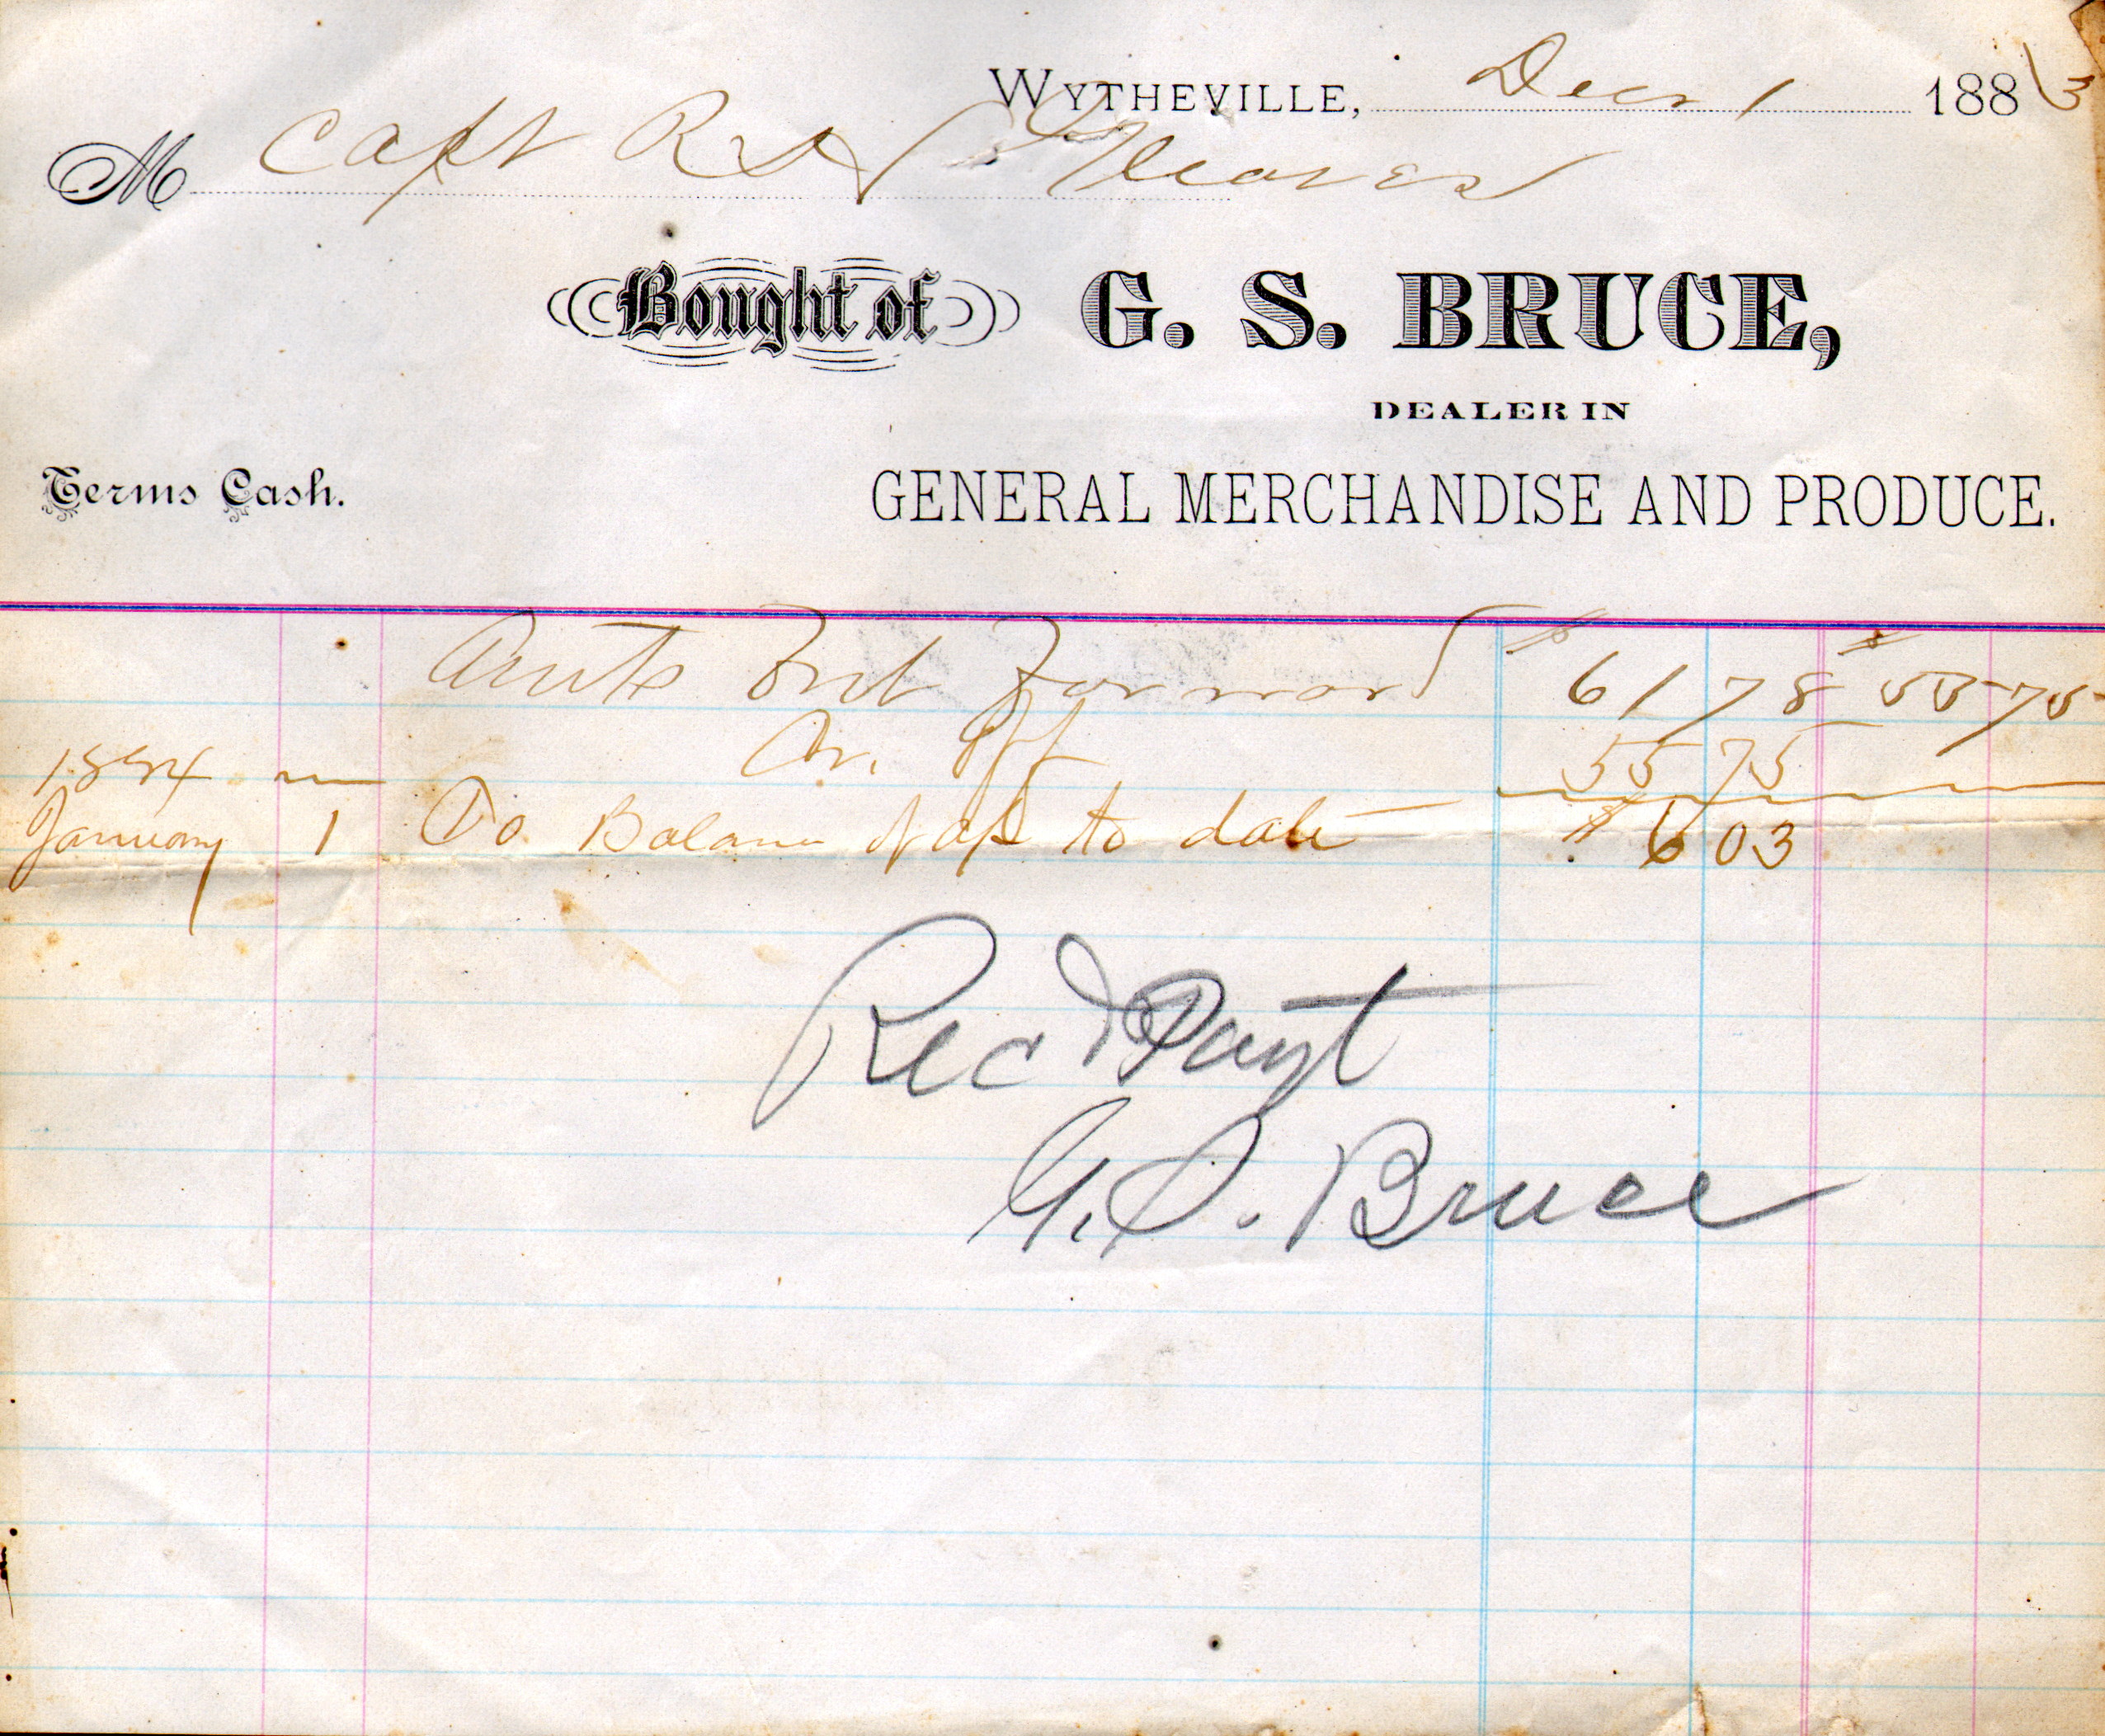 WYTHEVILLE, Decr 1 1883
M Capt R H Gleaves
Bought of G. S. BRUCE,
DEALER IN
Terms Cash. GENERAL MERCHANDISE AND PRODUCE.
Amts Brt Forward $ 61 78 $ 55 75
Cr. 55 75
1884
January 1 To Balance to date $ 6 03
Recd Payt
G. S. Bruce